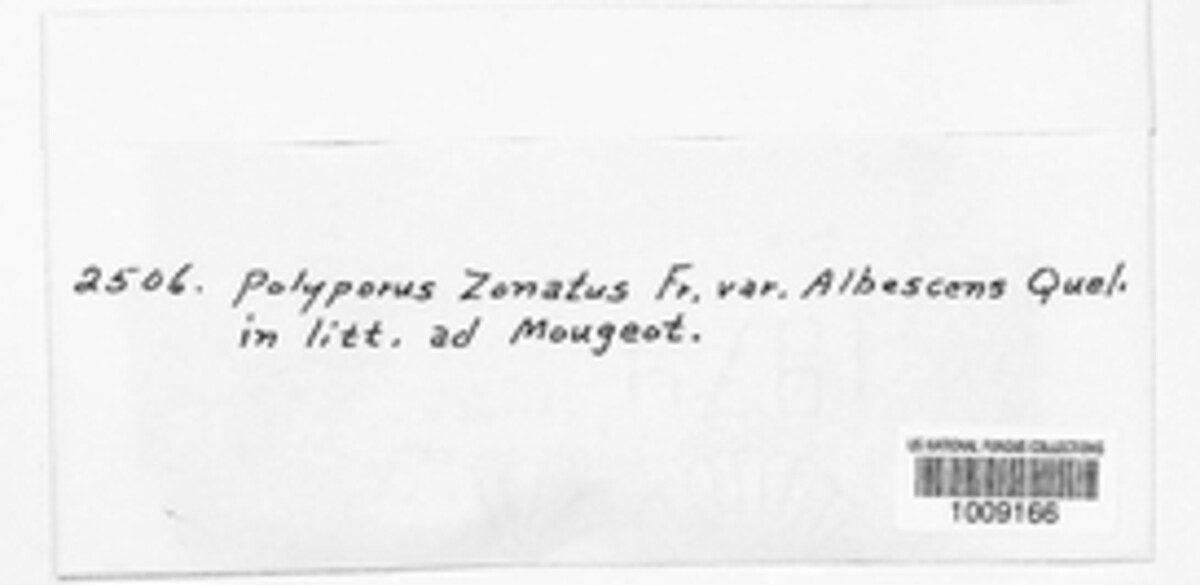 2506. Polyporus Zonatus Fr. var. Albescens Quel.
in litt. ad Mougeot.
US NATIONAL FUNGUS COLLECTIONS
1009166